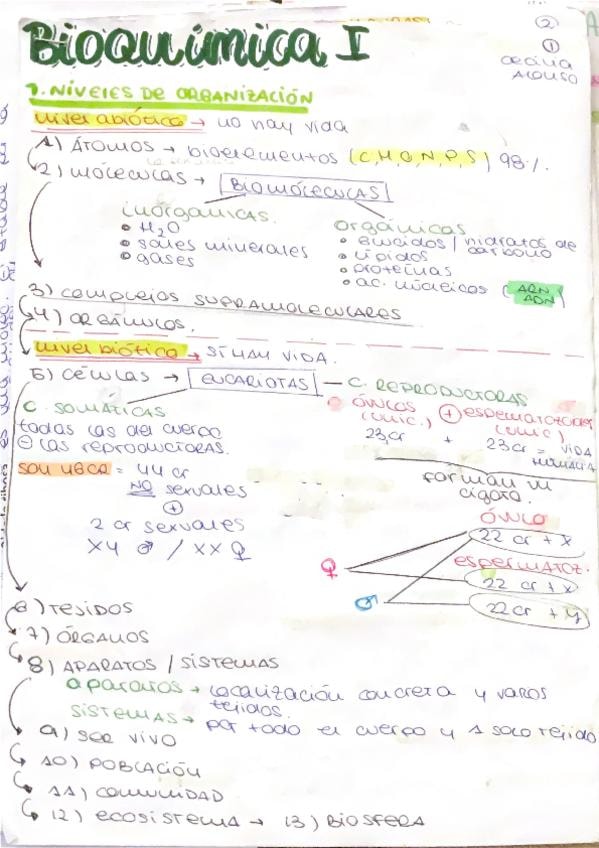 Bioquímica I
②
①
Cecilia
Alonso
1. NIVELES DE ORGANIZACIÓN
nivel abiótico → no hay vida
1) ÁTOMOS → bioelementos (C,H,O,N,P,S) 98%.
2) MÓLECULAS → BIOMÓLECULAS
inorgánicas.
• H₂O
• sales minerales
• gases
orgánicas
• glúcidos / hidratos de carbono
• lípidos
• proteínas
• ac. núcleicos (ARN ADN)
3) COMPLEJOS SUPRAMOLECULARES
4) ORGÁNULOS.
nivel biótico → SI HAY VIDA.
5) CÉLULAS → EUCARIOTAS — C. REPRODUCTORAS
C. SOMÁTICAS
todas las del cuerpo
⊖ las reproductoras.
SON 46CR = 44 cr
NO sexuales
⊕
2 cr sexuales
XY ♂ / XX ♀
ÓVULOS ⊕ espermatozoides
23cr + 23cr = VIDA HUMANA
forman un
cigoto.
ÓVULO
22 cr + X
espermatoz.
♀ 22 cr + X
♂ 22 cr + Y
6) TEJIDOS
7) ÓRGANOS
8) APARATOS / SISTEMAS
aparatos → localización concreta y varios
tejidos.
SISTEMAS → por todo el cuerpo y 1 solo tejido
9) SER VIVO
10) POBLACIÓN
11) COMUNIDAD
12) ECOSISTEMA → 13) BIOSFERA